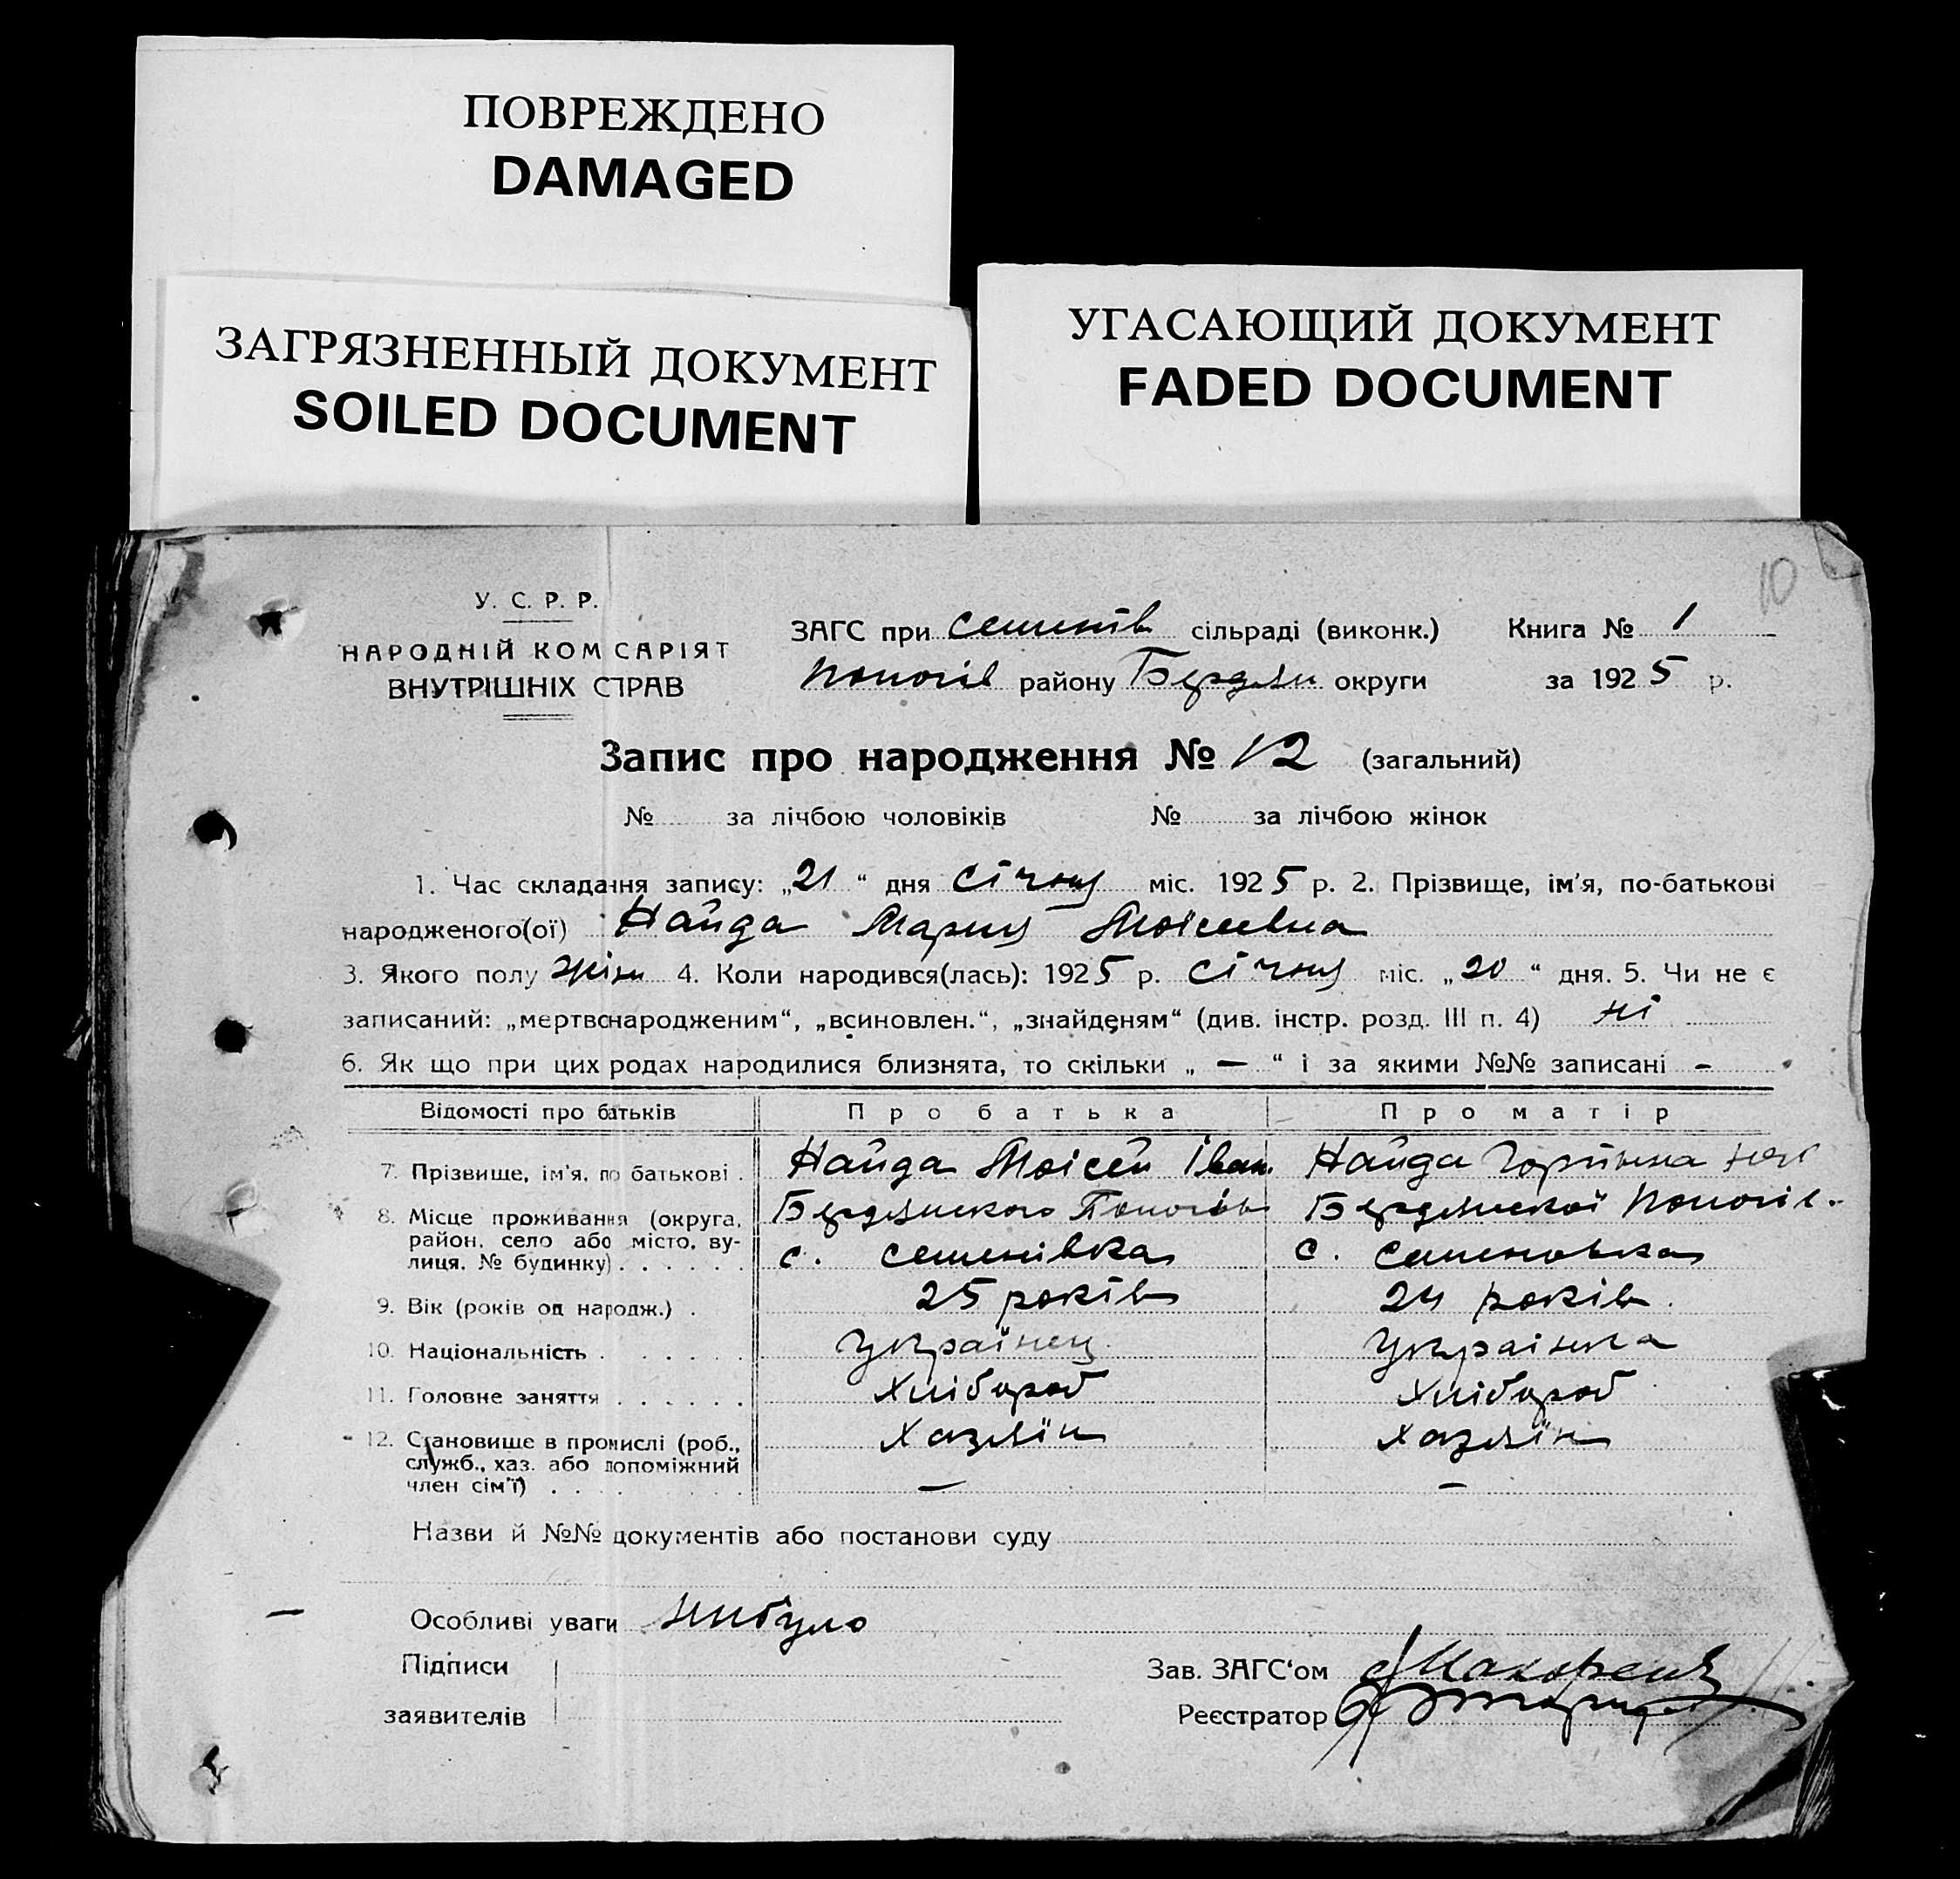 ПОВРЕЖДЕНО
DAMAGED
ЗАГРЯЗНЕННЫЙ ДОКУМЕНТ
SOILED DOCUMENT
УГАСАЮЩИЙ ДОКУМЕНТ
FADED DOCUMENT
10
У. С. Р. Р.
НАРОДНІЙ КОМІСАРІЯТ
ВНУТРІШНІХ СПРАВ
ЗАГС при Семенів сільраді (виконк.) Книга № 1
Пологів району Бердян округи за 1925 р.
Запис про народження № 12 (загальний)
№ за лічбою чоловіків № за лічбою жінок
1. Час складання запису: „21“ дня січня міс. 1925 р. 2. Прізвище, ім'я, по-батькові
народженого(ої) Найда Мария Моісеевна
3. Якого полу жін 4. Коли народився(лась): 1925 р. січня міс. „20“ дня. 5. Чи не є
записаний: „мертвонародженим“, „всиновлен.“, „знайденям“ (див. інстр. розд. III п. 4) ні
6. Як що при цих родах народилися близнята, то скільки „ — “ і за якими №№ записані -
Відомості про батьків Про батька Про матір
7. Прізвище, ім'я, по батькові . Найда Моісей Іван. Найда Горпина
8. Місце проживання (округа, Бердянского Пологів Бердянскої Пологів.
район, село або місто, ву-
лиця, № будинку) . . . . . . с. Семенівка с. Семеновка
9. Вік (років од народж.) . 25 років 24 років.
10. Національність . . . . . Українец Українка
11. Головне заняття . . . . . . Хлібороб Хлібороб
12. Становище в промислі (роб., Хазяїн Хазяїн
служб., хаз. або допоміжний
член сім'ї) . . . — —
Назви й №№ документів або постанови суду
Особливі уваги небуло
Підписи
заявителів
Зав. ЗАГС'ом
Реєстратор